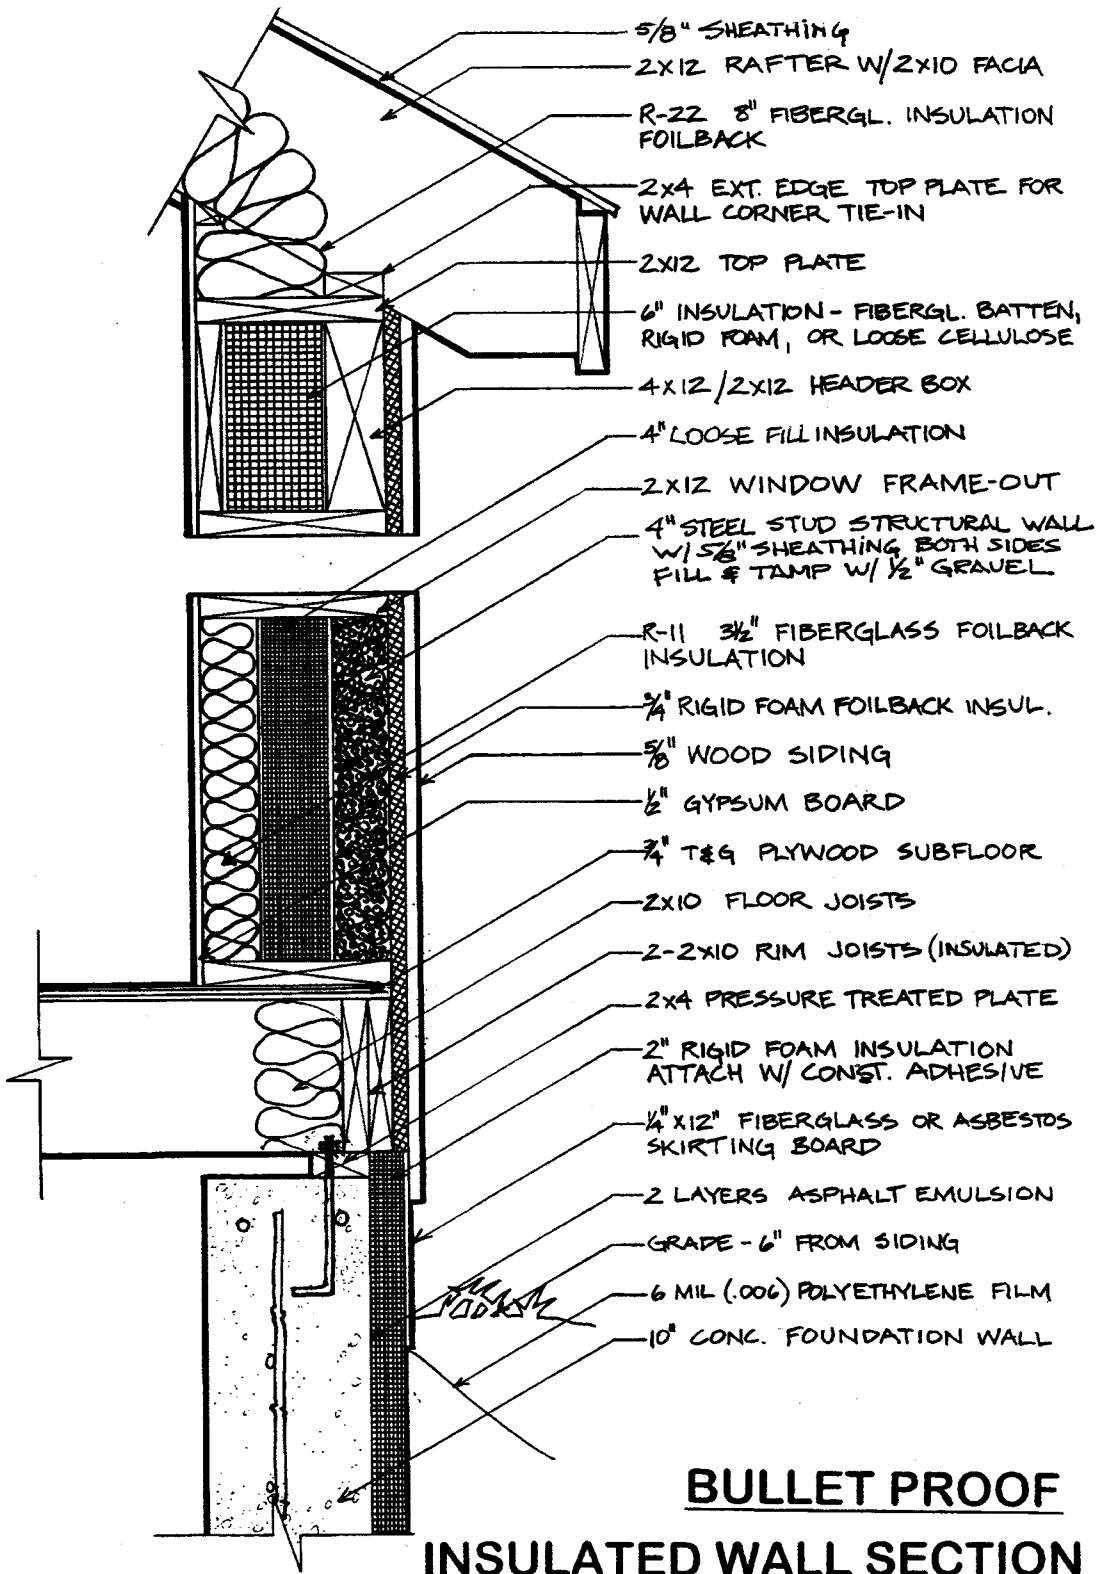 5/8" SHEATHING
2X12 RAFTER W/2X10 FACIA
R-22 8" FIBERGL. INSULATION
FOILBACK
2X4 EXT. EDGE TOP PLATE FOR
WALL CORNER TIE-IN
2X12 TOP PLATE
6" INSULATION - FIBERGL. BATTEN,
RIGID FOAM, OR LOOSE CELLULOSE
4X12/2X12 HEADER BOX
4" LOOSE FILL INSULATION
2X12 WINDOW FRAME-OUT
4" STEEL STUD STRUCTURAL WALL
W/ 5/8" SHEATHING BOTH SIDES
FILL & TAMP W/ 1/2" GRAVEL
R-11 3½" FIBERGLASS FOILBACK
INSULATION
3/4" RIGID FOAM FOILBACK INSUL.
5/8" WOOD SIDING
1/2" GYPSUM BOARD
3/4" T&G PLYWOOD SUBFLOOR
2X10 FLOOR JOISTS
2-2X10 RIM JOISTS (INSULATED)
2X4 PRESSURE TREATED PLATE
2" RIGID FOAM INSULATION
ATTACH W/ CONST. ADHESIVE
1/4" X 12" FIBERGLASS OR ASBESTOS
SKIRTING BOARD
2 LAYERS ASPHALT EMULSION
GRADE - 6" FROM SIDING
6 MIL (.006) POLYETHYLENE FILM
10" CONC. FOUNDATION WALL
BULLET PROOF
INSULATED WALL SECTION